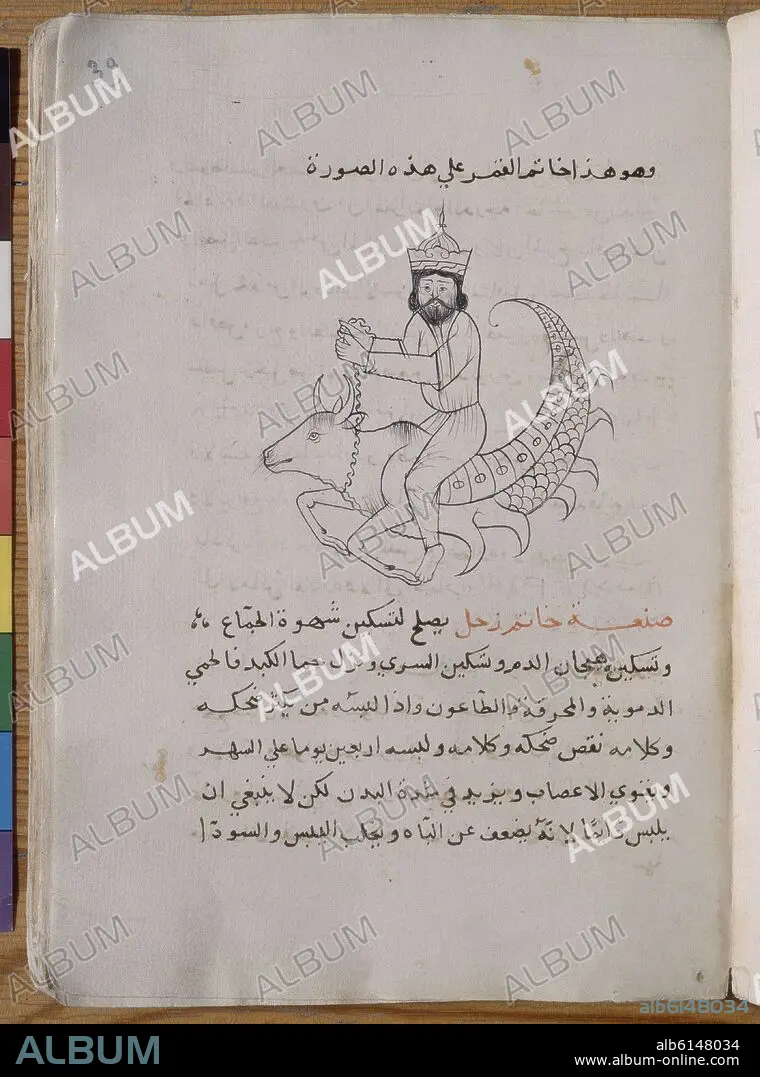 وهو هذا خاتم القمر علي هذه الصورة
صنعة خاتم زحل يصلح لتسكين شهوة الجماع
وتسكين هيجان الدم وتسكين السري ونزل حما الكبد فالحمي
الدموية والمحرقة والطاعون واذا لبسه من يكثر ضحكه
وكلامه نقص ضحكه وكلامه ولبسه اربعين يوما علي السهر
ويقوي الاعصاب ويزيد في شدة البدن لكن لا ينبغي ان
يلبس دائما لانه يضعف عن الباه ويجلب اليبس والسودا
ALBUM
alb6148034
ALBUM
alb6148034
www.album-online.com